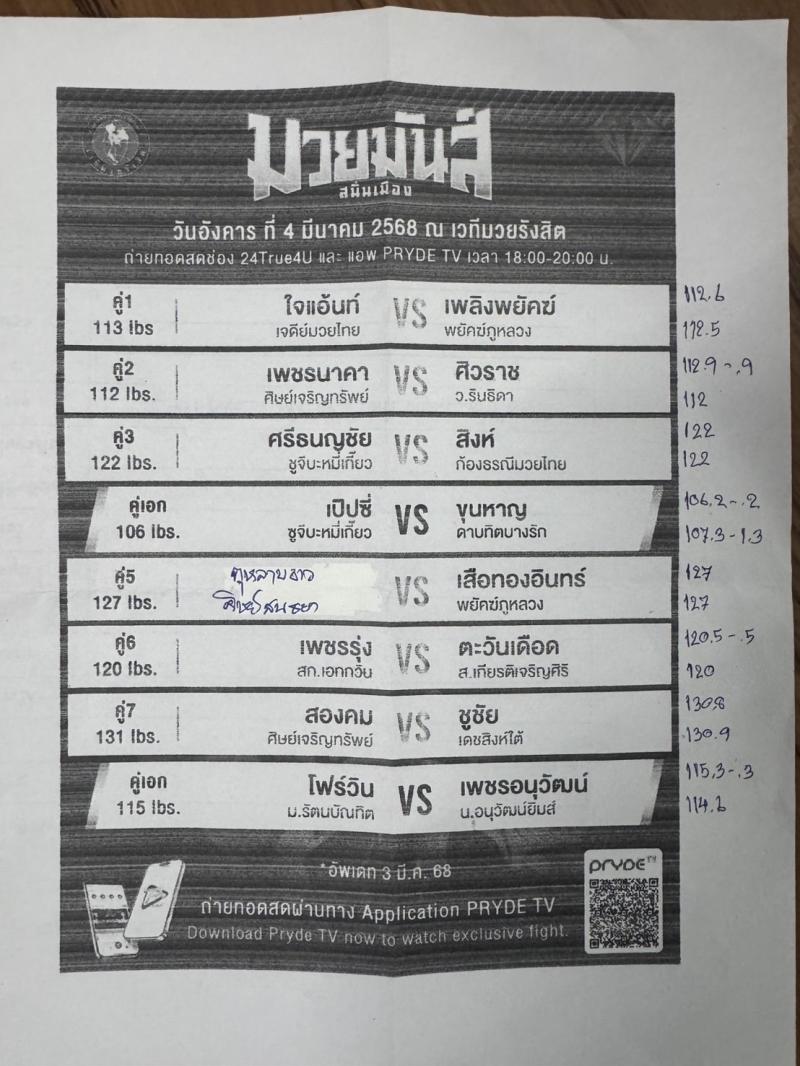 มวยมันส์
สนั่นเมือง
วันอังคาร ที่ 4 มีนาคม 2568 ณ เวทีมวยรังสิต
ถ่ายทอดสดช่อง 24True4U และ แอพ PRYDE TV เวลา 18:00-20:00 น.
คู่1 ใจแอ้นท์ VS เพลิงพยัคฆ์ 112.6
113 lbs เจดีย์มวยไทย พยัคฆ์ภูหลวง 112.5
คู่2 เพชรนาคา VS ศิวราช 112.9-.9
112 lbs. ศิษย์เจริญทรัพย์ ว.รินธิดา 112
คู่3 ศรีธนญชัย VS สิงห์ 122
122 lbs. ชูจีบะหมี่เกี๊ยว ก้องธรณีมวยไทย 122
คู่เอก เป๊ปซี่ VS ขุนหาญ 106.2-.2
106 lbs. ชูจีบะหมี่เกี๊ยว ดาบทิตบางรัก 107.3-1.3
คู่5 กุหลาบขาว VS เสือทองอินทร์ 127
127 lbs. ศิษย์สนธยา พยัคฆ์ภูหลวง 127
คู่6 เพชรรุ่ง VS ตะวันเดือด 120.5-.5
120 lbs. สก.เอกกวิน ส.เกียรติเจริญศิริ 120
คู่7 สองคม VS ชูชัย 130.8
131 lbs. ศิษย์เจริญทรัพย์ เดชสิงห์ใต้ 130.9
คู่เอก โฟร์วิน VS เพชรอนุวัฒน์ 115.3-.3
115 lbs. ม.รัตนบัณฑิต น.อนุวัฒน์ยิมส์ 114.6
*อัพเดท 3 มี.ค. 68
PRYDE TV
ถ่ายทอดสดผ่านทาง Application PRYDE TV
Download Pryde TV now to watch exclusive fight.